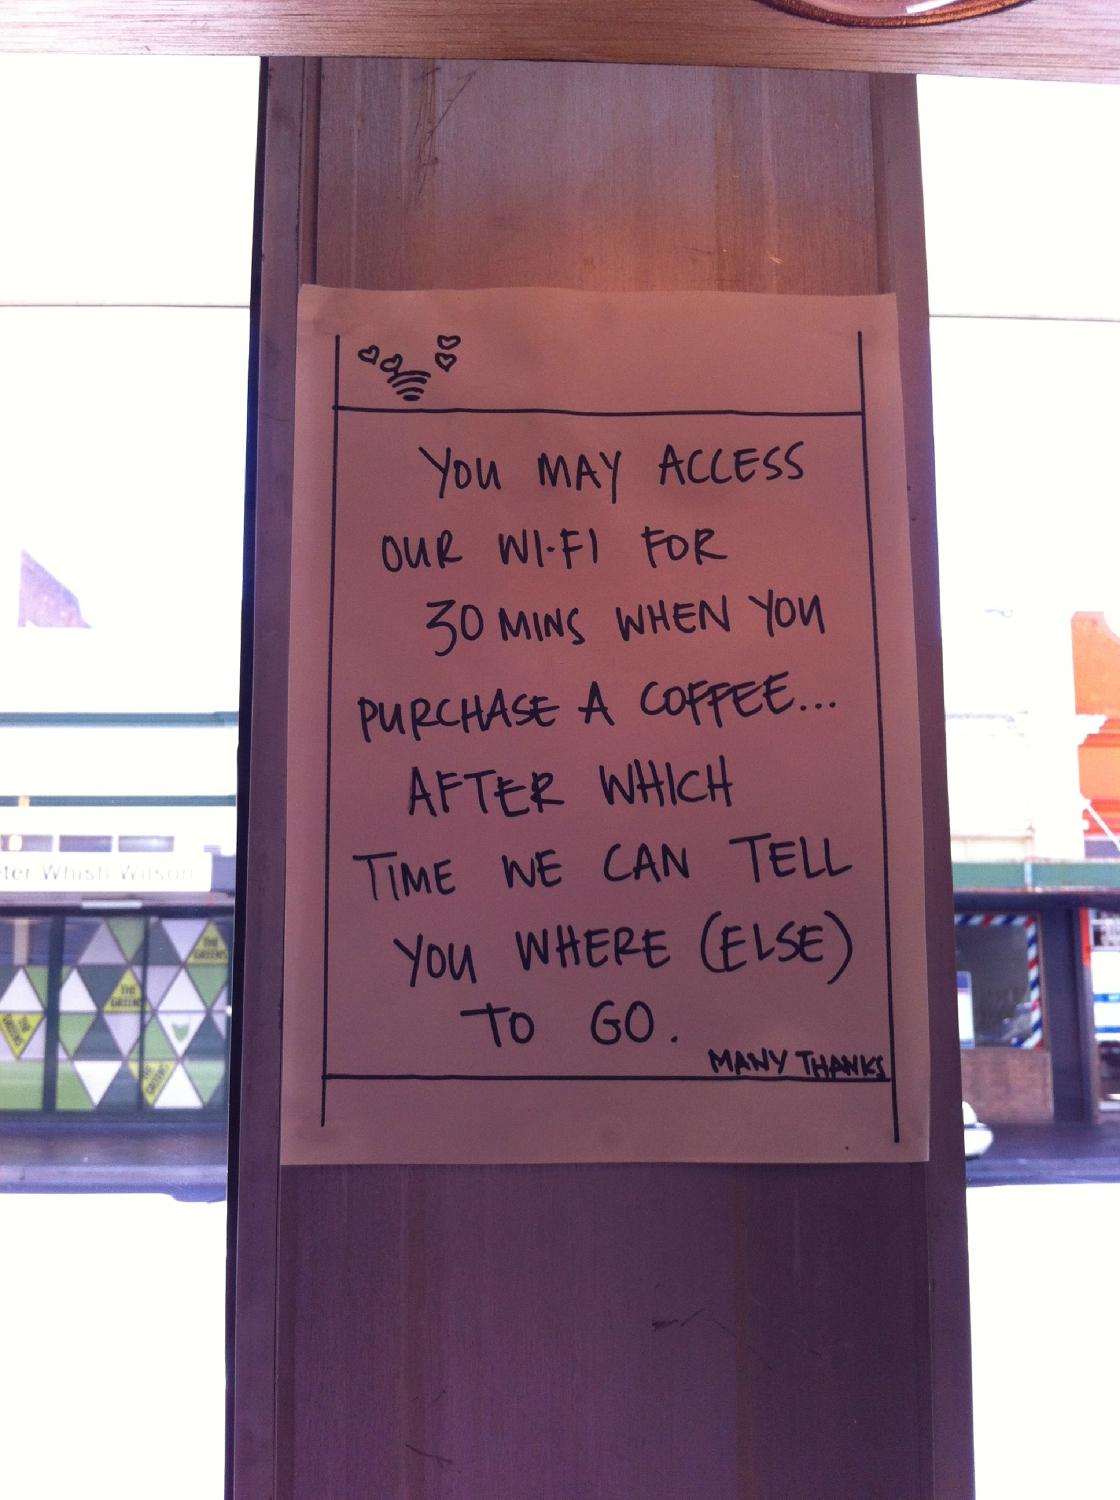 YOU MAY ACCESS
OUR WI-FI FOR
30 MINS WHEN YOU
PURCHASE A COFFEE...
AFTER WHICH
TIME WE CAN TELL
YOU WHERE (ELSE)
TO GO.
MANY THANKS
ter Whish Wilson
THE GREENS
THE GREENS
THE GREENS
THE GREENS